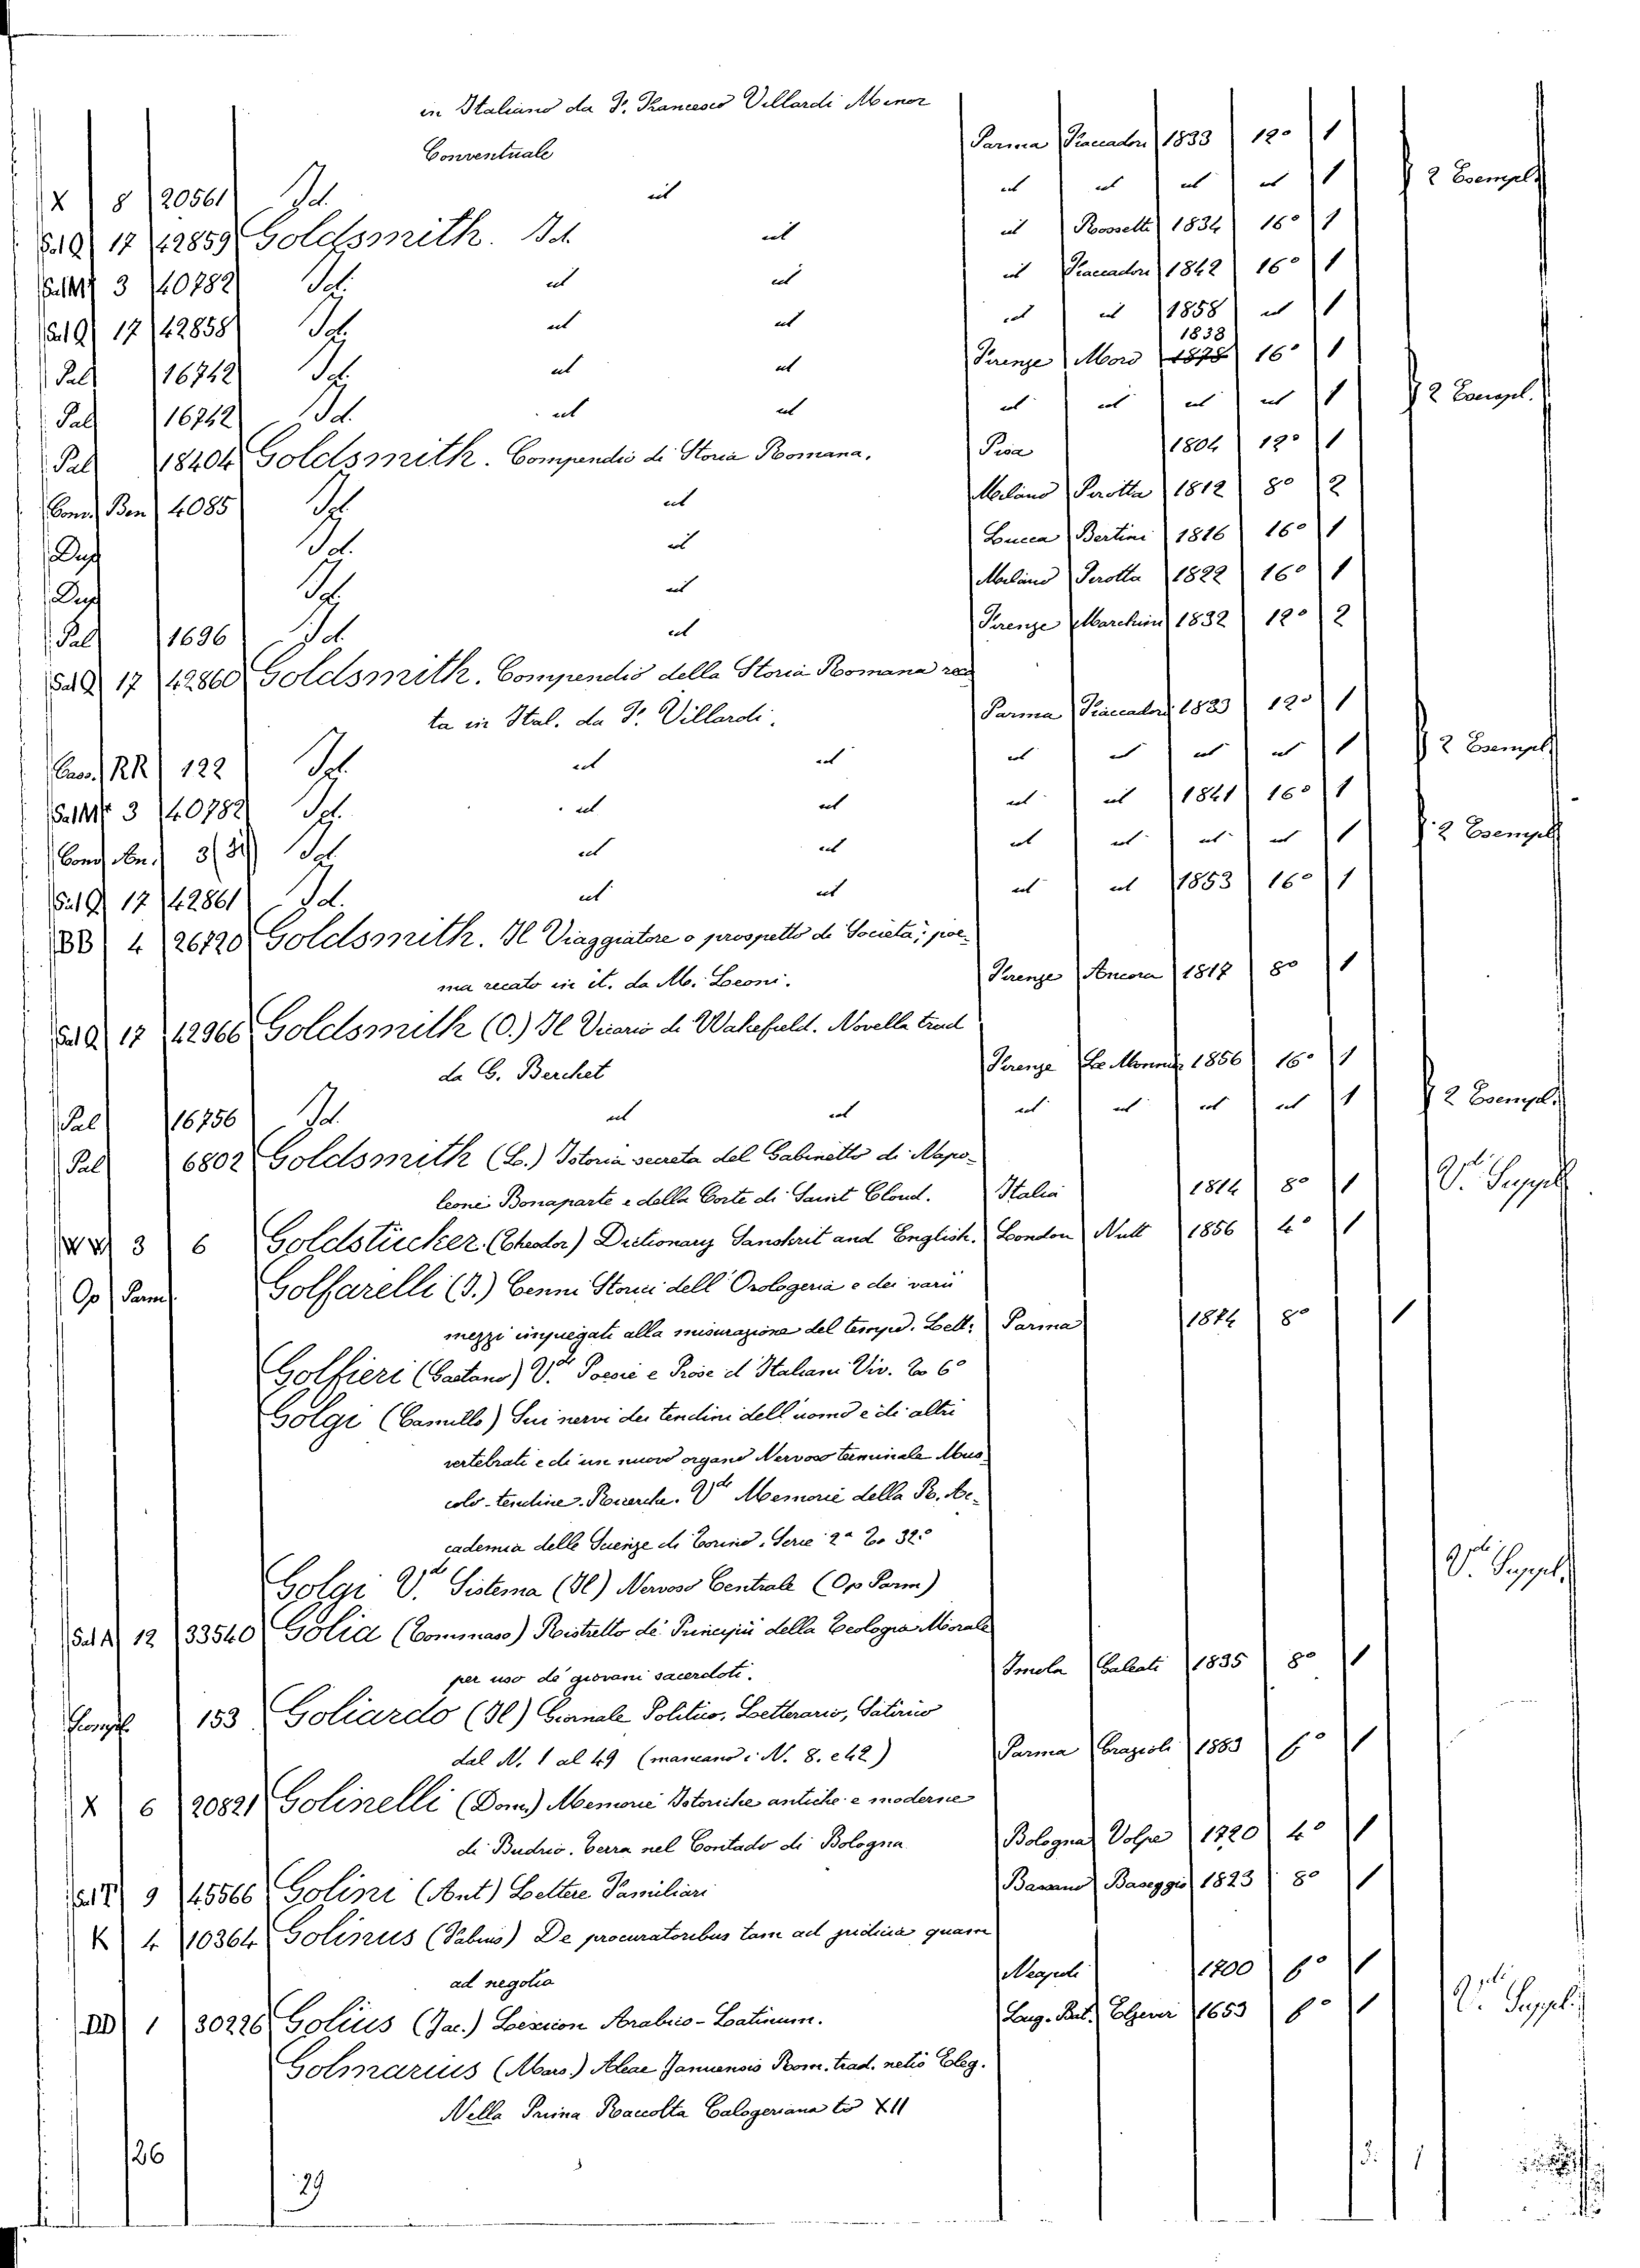 in Italiano da F. Francesco Villardi Minor
Conventuale Parma Fiaccadori 1833 12° 1
X 8 20561 Id. ut ut ut ut ut 1 2 Esempl.
Sal Q 17 42859 Goldsmith. Id. ut ut Rossetti 1834 16° 1
Sal M 3 40782 Id. ut ut ut Fiaccadori 1842 16° 1
Sal Q 17 42858 Id. ut ut ut ut 1858 ut 1
1838
Pal 16742 Id. ut ut Firenze Moro 1878 16° 1
Pal 16742 Id. ut ut ut ut ut ut 1 2 Esempl.
Pal 18404 Goldsmith. Compendio di Storia Romana. Pisa 1804 12° 1
Conv. Ben 4085 Id. ut Milano Pirotta 1812 8° 2
Dup Id. ut Lucca Bertini 1816 16° 1
Dup Id. ut Milano Pirotta 1822 16° 1
Pal 1696 Id. ut Firenze Marchini 1832 12° 2
Sal Q 17 42860 Goldsmith. Compendio della Storia Romana reca
ta in Ital. da F. Villardi. Parma Fiaccadori 1833 12° 1
Cass. RR 122 Id. ut ut ut ut ut ut 1 2 Esempl
Sal M 3 40782 Id. ut ut ut ut 1841 16° 1
Cond. An. 3 Id. ut ut ut ut ut ut 1 2 Esempl
Sal Q 17 42861 Id. ut ut ut ut 1853 16° 1
BB 4 26720 Goldsmith. Il Viaggiatore o prospetto de Società, poe-
ma recato in it. da M. Leoni. Firenze Ancora 1817 8° 1
Sal Q 17 42966 Goldsmith (O.) Il Vicario di Wakefield. Novella trad
da G. Berchet Firenze Le Monnier 1856 16° 1
Pal 16756 Id. ut ut ut ut ut ut 1 2 Esempl.
Pal 6802 Goldsmith (L.) Istoria secreta del Gabinetto di Napo-
leone Bonaparte e della Corte di Saint Cloud. Italia 1814 8° 1 Vdi Suppl
WW 3 6 Goldstücker (Theodor) Dictionary Sanskrit and English. London Nutt 1856 4° 1
Op Parm. Golfarelli (I.) Cenni Storici dell' Orologeria e dei varii
mezzi impiegati alla misurazione del tempo. Lett. Parma 1874 8° 1
Golfieri (Gaetano) Vdi Poesie e Prose d'Italiani Viv. To 6°
Golgi (Camillo) Sui nervi dei tendini dell' uomo e di altri
vertebrati e di un nuovo organo Nervoso terminale Mus-
colo-tendine. Ricerche. Vdi Memorie della R. Ac-
cademia delle Scienze di Torino. Serie 2a To 32°
Golgi Vdi Sistema (Il) Nervoso Centrale (Op Parm) Vdi Suppl.
Sal A 12 33540 Golia (Tommaso) Ristretto de' Principii della Teologia Morale
per uso de' giovani sacerdoti. Imola Galeati 1835 8° 1
153 Goliardo (Il) Giornale Politico, Letterario, Satirico
dal N. 1 al 49 (mancano i N. 8. e 42) Parma Grazioli 1883 f° 1
X 6 20821 Golinelli (Dom.) Memorie Istoriche antiche e moderne
di Budrio. Terra nel Contado di Bologna Bologna Volpe 1720 4° 1
Sal T 9 45566 Golini (Ant) Lettere Familiari Bassano Baseggio 1823 8° 1
K 4 10364 Golinus (Fabius) De procuratoribus tam ad judicia quam
ad negotia Neapoli 1700 f° 1
DD 1 30226 Golius (Jac.) Lexicon Arabico-Latinum. Lug. Bat. Elzevir 1653 f° 1 Vdi Suppl.
Golmarius (Marc.) Aleae Januensis Rom. trad. netio Eleg.
Nella Prima Raccolta Calogeriana to XII
126 3. 1
29